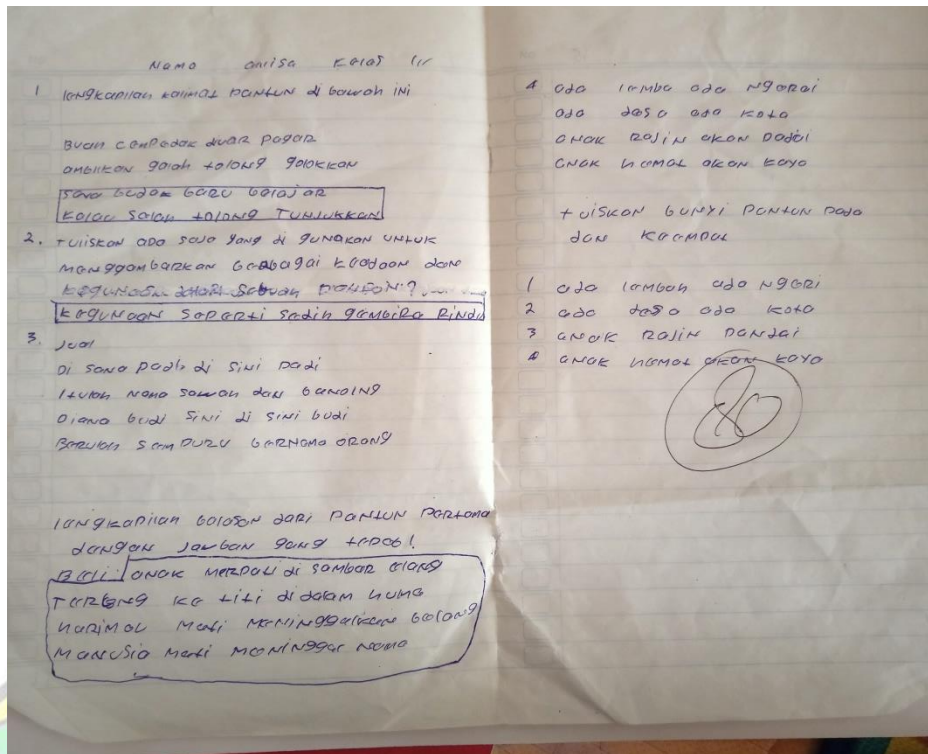 Nama anisa Kelas III
1 lengkapilah kalimat pantun di bawah ini
Buah cempedak diuar pagar
ambilkan galah tolong jolokkan
saya budak baru belajar
kalau salah tolong TUNJUKKAN
2. Tuliskan apa saja yang di gunakan untuk
menggambarkan berbagai keadaan dan
kegunaan dari sebuah pantun?
kegunaan seperti sedih gembira Rindu
3. Jual
Di sana padi di sini padi
itulah nama sawah dan
Diana budi sini di sini budi
Barulah sempuru bernama orang
lengkapilah balasan dari pantun pertama
dengan jawban yang tepat!
Beli : anak merpati di sambar elang
Terbang ke titi di dalam huma
harimau mati meninggalkan belang
manusia mati meninggal nama
4 ada lemba ada ngarai
ada desa ada kota
anak Rajin akan
anak hemat akan kaya
tuiskan bunyi pantun pada
dan keempat
1 ada lembah ada ngeri
2 ada desa ada kota
3 anak Rajin pandai
4 anak hemat akan kaya
80